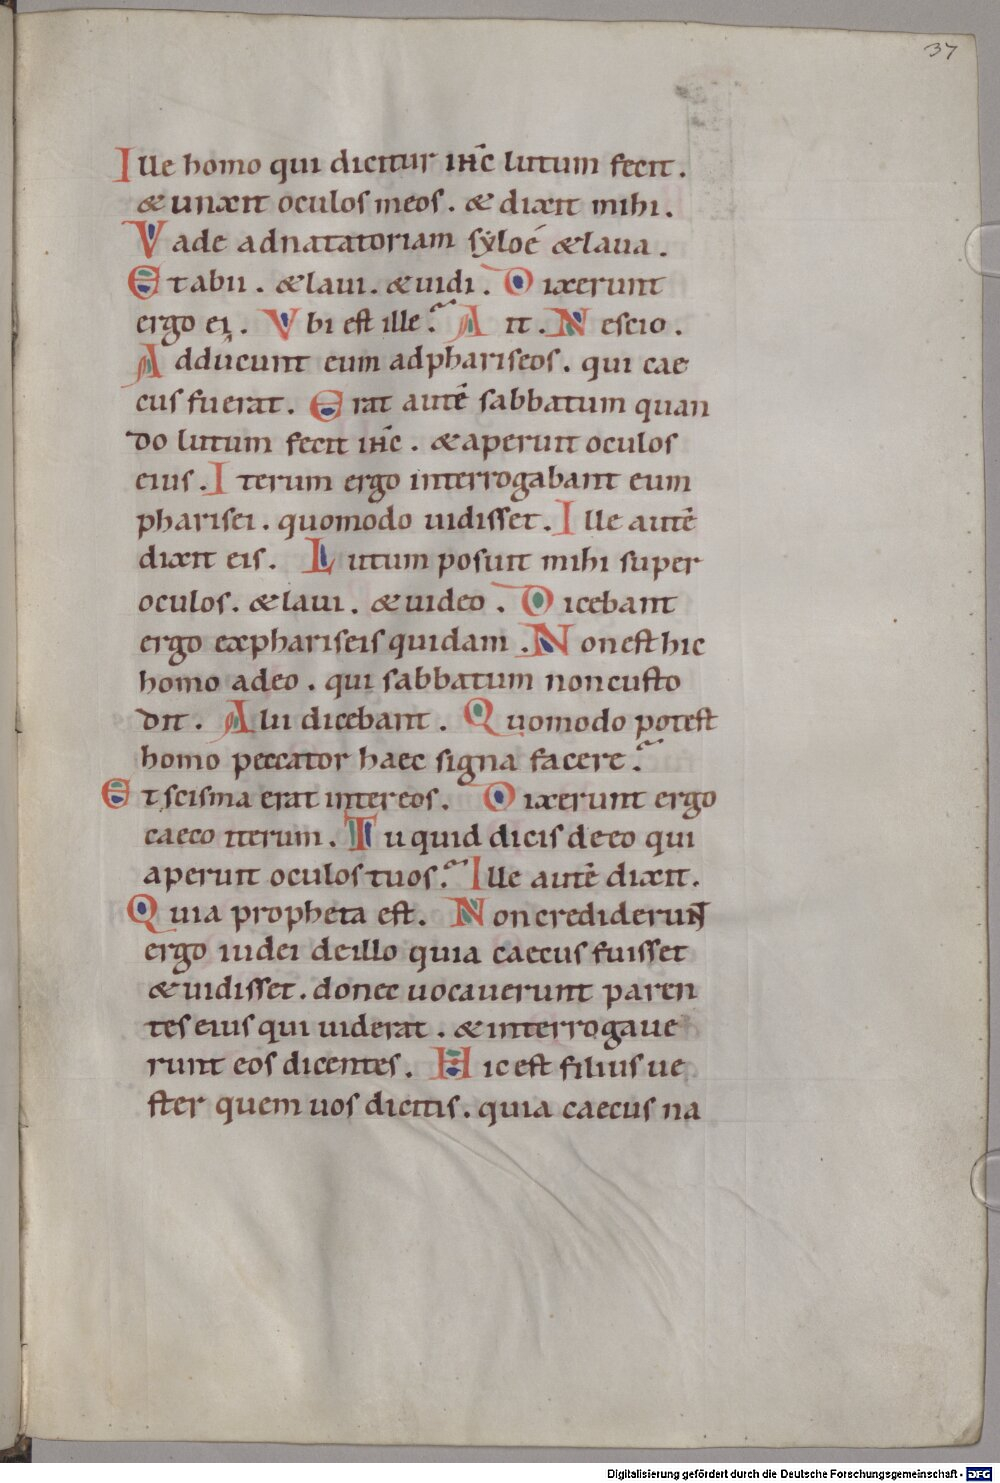 37
Ille homo qui dicitur ihc̄ lutum fecit.
& unxit oculos meos. & dixit mihi.
Vade adnatatoriam syloé & laua.
Et abii. & laui. & uidi. Dixerunt
ergo ei. Vbi est ille? Ait. Nescio.
Adducunt eum adphariseos. qui cae
cus fuerat. Erat autē sabbatum quan
do lutum fecit ihc̄. & aperuit oculos
eius. Iterum ergo interrogabant eum
pharisei. quomodo uidisset. Ille autē
dixit eis. Lutum posuit mihi super
oculos. & laui. & uideo. Dicebant
ergo exphariseis quidam. Non est hic
homo adeo. qui sabbatum noncusto
dit. Alii dicebant. Quomodo potest
homo peccator haec signa facere?
Et scisma erat intereos. Dixerunt ergo
caeco iterum. Tu quid dicis deeo qui
aperuit oculos tuos? Ille autē dixit.
Quia propheta est. Non crediderunt
ergo iudei deillo quia caecus fuisset
& uidisset. donec uocauerunt paren
tes eius qui uiderat. & interrogaue
runt eos dicentes. Hic est filius ue
ster quem uos dicitis. quia caecus na
Digitalisierung gefördert durch die Deutsche Forschungsgemeinschaft - DFG